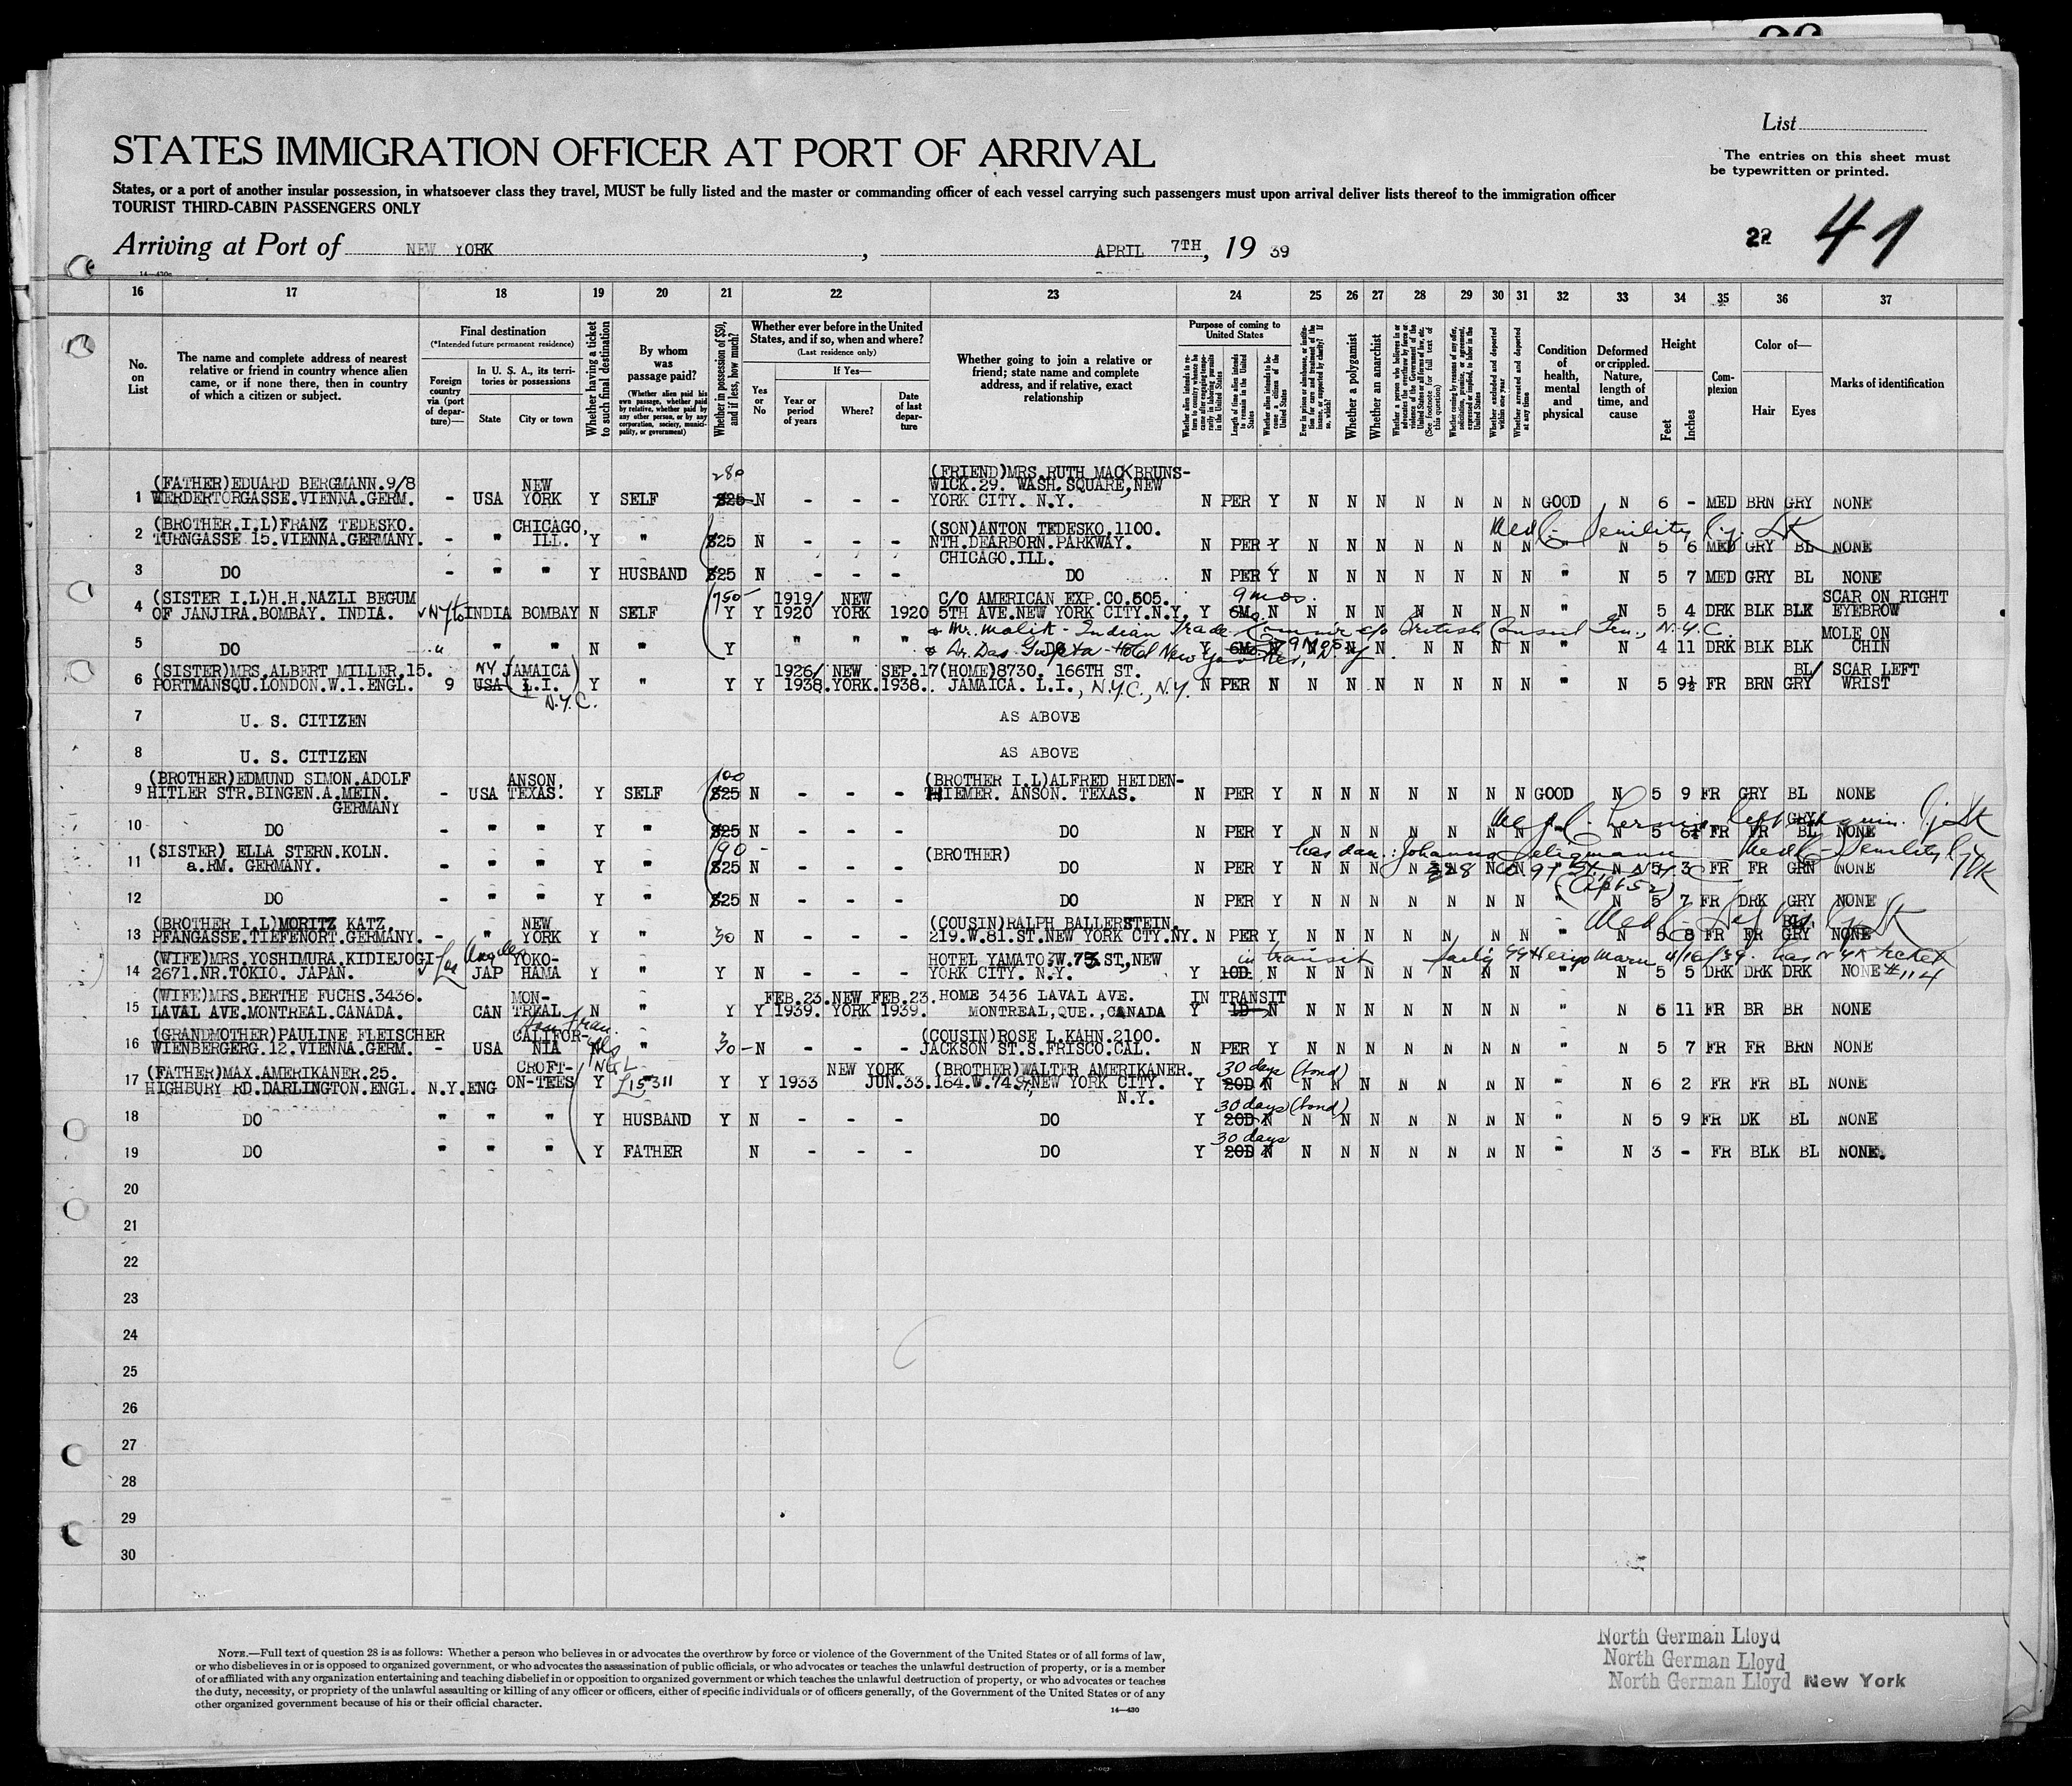 List
STATES IMMIGRATION OFFICER AT PORT OF ARRIVAL
The entries on this sheet must
be typewritten or printed.
States, or a port of another insular possession, in whatsoever class they travel, MUST be fully listed and the master or commanding officer of each vessel carrying such passengers must upon arrival deliver lists thereof to the immigration officer
TOURIST THIRD-CABIN PASSENGERS ONLY
22 41
Arriving at Port of NEW YORK, APRIL 7TH, 19 39
16 17 18 19 20 21 22 23 24 25 26 27 28 29 30 31 32 33 34 35 36 37
No. on List
The name and complete address of nearest relative or friend in country whence alien came, or if none there, then in country of which a citizen or subject.
Final destination
(*Intended future permanent residence)
Foreign country via (port of departure)—
In U. S. A., its territories or possessions
State
City or town
Whether having a ticket to such final destination
By whom was passage paid?
(Whether alien paid his own passage, whether paid by relative, whether paid by any other person, or by any corporation, society, municipality, or government)
Whether in possession of $50, and if less, how much?
Whether ever before in the United States, and if so, when and where?
(Last residence only)
Yes or No
If Yes—
Year or period of years
Where?
Date of last departure
Whether going to join a relative or friend; state name and complete address, and if relative, exact relationship
Purpose of coming to United States
Whether a polygamist
Whether an anarchist
Condition of health, mental and physical
Deformed or crippled. Nature, length of time, and cause
Height
Feet
Inches
Complexion
Color of—
Hair
Eyes
Marks of identification
280 (FRIEND)MRS.RUTH MACKBRUNS-
(FATHER)EDUARD BERGMANN.9/8 NEW WICK.29. WASH.SQUARE,NEW
1 WERDERTORGASSE.VIENNA.GERM. - USA YORK Y SELF $25 N - - - YORK CITY. N.Y. N PER Y N N N N N N N GOOD N 6 - MED BRN GRY NONE
(BROTHER.I.L)FRANZ TEDESKO. CHICAGO, (SON)ANTON TEDESKO.1100. Med C- Senility
2 TURNGASSE 15.VIENNA.GERMANY. - " ILL. Y " $25 N - - - NTH.DEARBORN.PARKWAY. N PER Y N N N N N N N N 5 6 MED GRY BL NONE
CHICAGO.ILL.
3 DO - " " Y HUSBAND $25 N - - - DO N PER Y N N N N N N N " N 5 7 MED GRY BL NONE
(SISTER I.L)H.H.NAZLI BEGUM 750- 1919/ NEW C/O AMERICAN EXP.CO.605. 9 mos. SCAR ON RIGHT
4 OF JANJIRA.BOMBAY. INDIA. INDIA BOMBAY N SELF Y Y 1920 YORK 1920 5TH AVE.NEW YORK CITY.N.Y. Y 6M. N N N N N N N N " N 5 4 DRK BLK BLK EYEBROW
& Mr. Malik - Indian Trade Comm'r c/o British Consul Gen., N.Y.C. MOLE ON
5 DO " " N " Y " " " DO Y 6M 9 mos N N N N N N N N " N 4 11 DRK BLK BLK CHIN
& Dr. Das Gupta - Hotel New Yorker, N.Y.
(SISTER)MRS.ALBERT MILLER.15. NY JAMAICA 1926/ NEW SEP.17 (HOME)8730, 166TH ST. BL/ SCAR LEFT
6 PORTMANSQU.LONDON.W.1.ENGL. 9 USA (L.I.) Y " Y Y 1938.YORK.1938. JAMAICA. L.I., N.Y.C., N.Y. N PER N N N N N N N N " N 5 9½ FR BRN GRY WRIST
N.Y.C.
7 U. S. CITIZEN AS ABOVE
8 U. S. CITIZEN AS ABOVE
(BROTHER)EDMUND SIMON.ADOLF ANSON, 100 (BROTHER I.L)ALFRED HEIDEN-
9 HITLER STR.BINGEN.A.MEIN. - USA TEXAS. Y SELF $25 N - - - HIEMER. ANSON. TEXAS. N PER Y N N N N N N N GOOD N 5 9 FR GRY BL NONE
GERMANY
Med C. hernia left GRY/
10 DO - " " Y " $25 N - - - DO N PER Y N N N N N N N " N 5 6½ FR FR BL NONE
(SISTER) ELLA STERN.KOLN. 90- (BROTHER) has dau.: Johanna Seligmann Med C- Senility
11 a.RM. GERMANY. - " " Y " $25 N - - - DO N PER Y N N N N N N N N 5 3 FR FR GRN NONE
12 DO - " " Y " $25 N - - - DO N PER Y N N N N N N N " N 5 7 FR DRK GRY NONE
(BROTHER I.L)MORITZ KATZ. NEW (COUSIN)RALPH BALLERSTEIN. Med C- BL/
13 PFANGASSE.TIEFENORT.GERMANY. - " YORK Y " 30 N - - - 219.W.81.ST.NEW YORK CTY.NY. N PER Y N N N N N N N " N 5 8 FR FR GRY NONE
(WIFE)MRS.YOSHIMURA.KIDIEJOGI Los Angeles YOKO- HOTEL YAMATO.W.75.ST,NEW in transit
14 2671.NR.TOKIO. JAPAN. JAP HAMA Y " Y N - - - YORK CITY. N.Y. Y 10D. N N N N N N N N " N 5 5 DRK DRK DRK NONE #114
(WIFE)MRS.BERTHE FUCHS.3436. MON- FEB.23.NEW FEB.23. HOME 3436 LAVAL AVE. IN TRANSIT
15 LAVAL AVE.MONTREAL.CANADA. CAN TREAL N " Y Y 1939. YORK 1939. MONTREAL,QUE.,CANADA Y 1D N N N N N N N N " N 6 11 FR BR BR NONE
(GRANDMOTHER)PAULINE FLEISCHER San Fran. CALIFOR- (COUSIN)ROSE L.KAHN.2100.
16 WIENBERGERG.12.VIENNA.GERM. - USA NIA N yes " 30- N - - - JACKSON ST.S.FRISCO.CAL. N PER Y N N N N N N N " N 5 7 FR FR BRN NONE
(FATHER)MAX.AMERIKANER.25. CROFT- NGL NEW YORK (BROTHER)WALTER AMERIKANER. 30 days (bond)
17 HIGHBURY RD.DARLINGTON.ENGL. N.Y.ENG ON-TEES Y 15311 Y Y 1933 JUN.33. 164.W.74.St,NEW YORK CITY. Y 20D N N N N N N N N " N 6 2 FR FR BL NONE
N.Y.
30 days (bond)
18 DO " " " Y HUSBAND Y N - - - DO Y 20D N N N N N N N N " N 5 9 FR DK BL NONE
30 days
19 DO " " " Y FATHER N - - - DO Y 20D N N N N N N N N " N 3 - FR BLK BL NONE.
20
21
22
23
24
25
26
27
28
29
30
NOTE.—Full text of question 28 is as follows: Whether a person who believes in or advocates the overthrow by force or violence of the Government of the United States or of all forms of law,
or who disbelieves in or is opposed to organized government, or who advocates the assassination of public officials, or who advocates or teaches the unlawful destruction of property, or is a member
of or affiliated with any organization entertaining and teaching disbelief in or opposition to organized government or which teaches the unlawful destruction of property, or who advocates or teaches
the duty, necessity, or propriety of the unlawful assaulting or killing of any officer or officers, either of specific individuals or of officers generally, of the Government of the United States or of any
other organized government because of his or their official character.
14—430
North German Lloyd
North German Lloyd
North German Lloyd New York